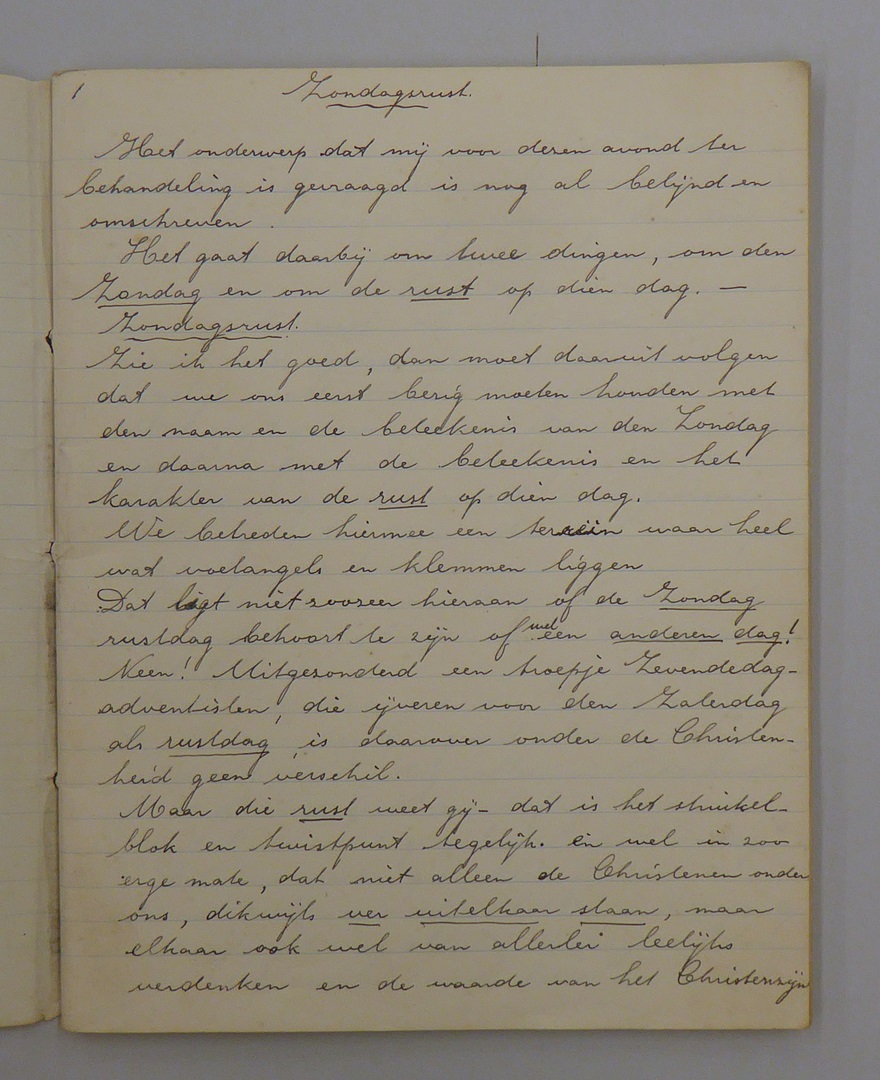 1 Zondagsrust.
Het onderwerp dat mij voor dezen avond ter
behandeling is gevraagd is nog al belijnd en
omschreven.
Het gaat daarbij om twee dingen, om den
Zondag en om de rust op dien dag. —
Zondagsrust.
Zie ik het goed, dan moet daaruit volgen
dat we ons eerst bezig moeten houden met
den naam en de beteekenis van den Zondag
en daarna met de beteekenis en het
karakter van de rust op dien dag.
We betreden hiermee een terrein waar heel
wat voetangels en klemmen liggen
Dat ligt niet zoozeer hieraan of de Zondag
rustdag behoort te zijn of wel een anderen dag!
Neen! Uitgezonderd een troepje Zevendedag-
adventisten, die ijveren voor den Zaterdag
als rustdag, is daarover onder de Christen-
heid geen verschil.
Maar die rust weet gij - dat is het struikel-
blok en twistpunt tegelijk. en wel in zoo
erge mate, dat niet alleen de Christenen onder
ons, dikwijls ver uitelkaar staan, maar
elkaar ook wel van allerlei leelijks
verdenken en de waarde van het Christenzijn